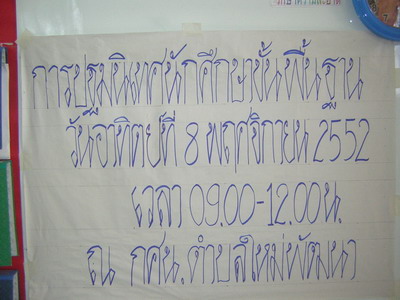 การปฐมนิเทศนักศึกษาขั้นพื้นฐาน
วันอาทิตย์ที่ 8 พฤศจิกายน 2552
เวลา 09.00-12.00น.
ณ กศน.ตำบลใหม่พัฒนา